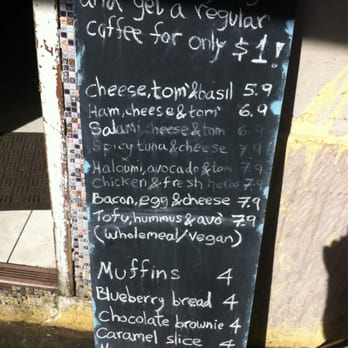 and get a regular
coffee for only $1!
cheese, tom & basil 5.9
Ham, cheese & tom 6.9
Salami, cheese & tom 6.9
Spicy tuna & cheese 7.9
Haloumi, avocado & tom 7.9
Chicken & fresh herbs 7.9
Bacon, egg & cheese 7.9
Tofu, hummus & avo 7.9
(wholemeal/vegan)
Muffins 4
Blueberry bread 4
Chocolate brownie 4
Caramel slice 4